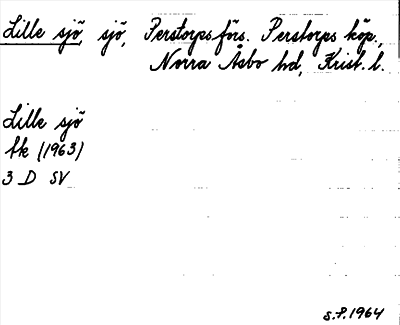 Lille sjö, sjö, Perstorps förs. Perstorps köp.,
Norra Åsbo hd, Krist. l.
Lille sjö
fk (1963)
3 D SV
S.P. 1964